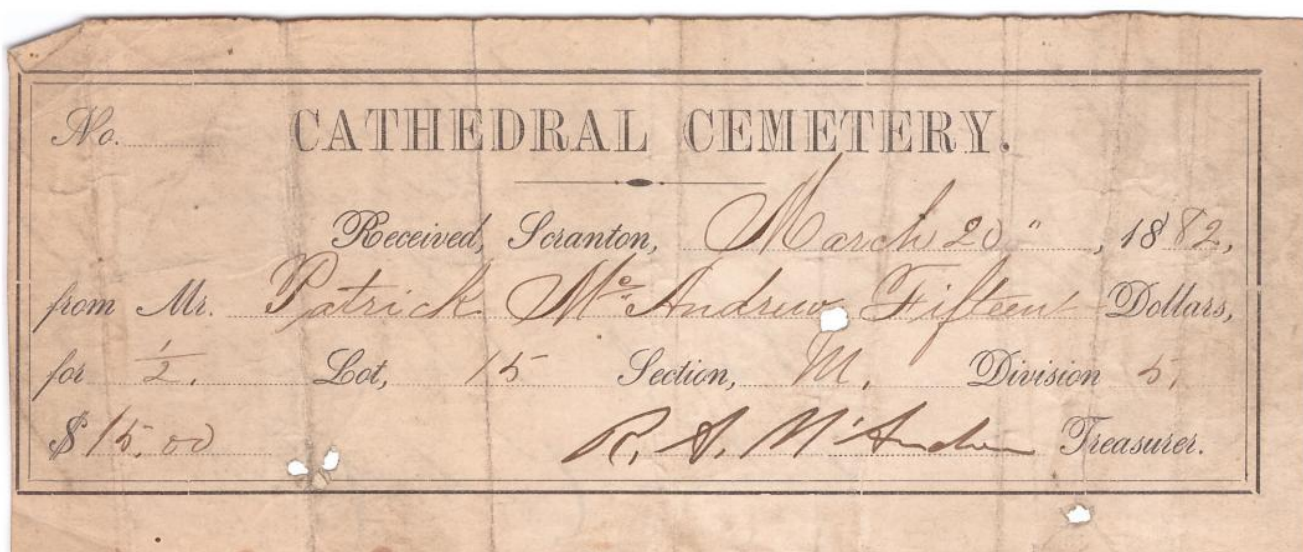 No. CATHEDRAL CEMETERY.
Received, Scranton, March 20", 1882,
from Mr. Patrick Mc Andrew Fifteen Dollars,
for 1/2. Lot, 15 Section, M. Division 5,
$15.00 R. A. McAndrew Treasurer.